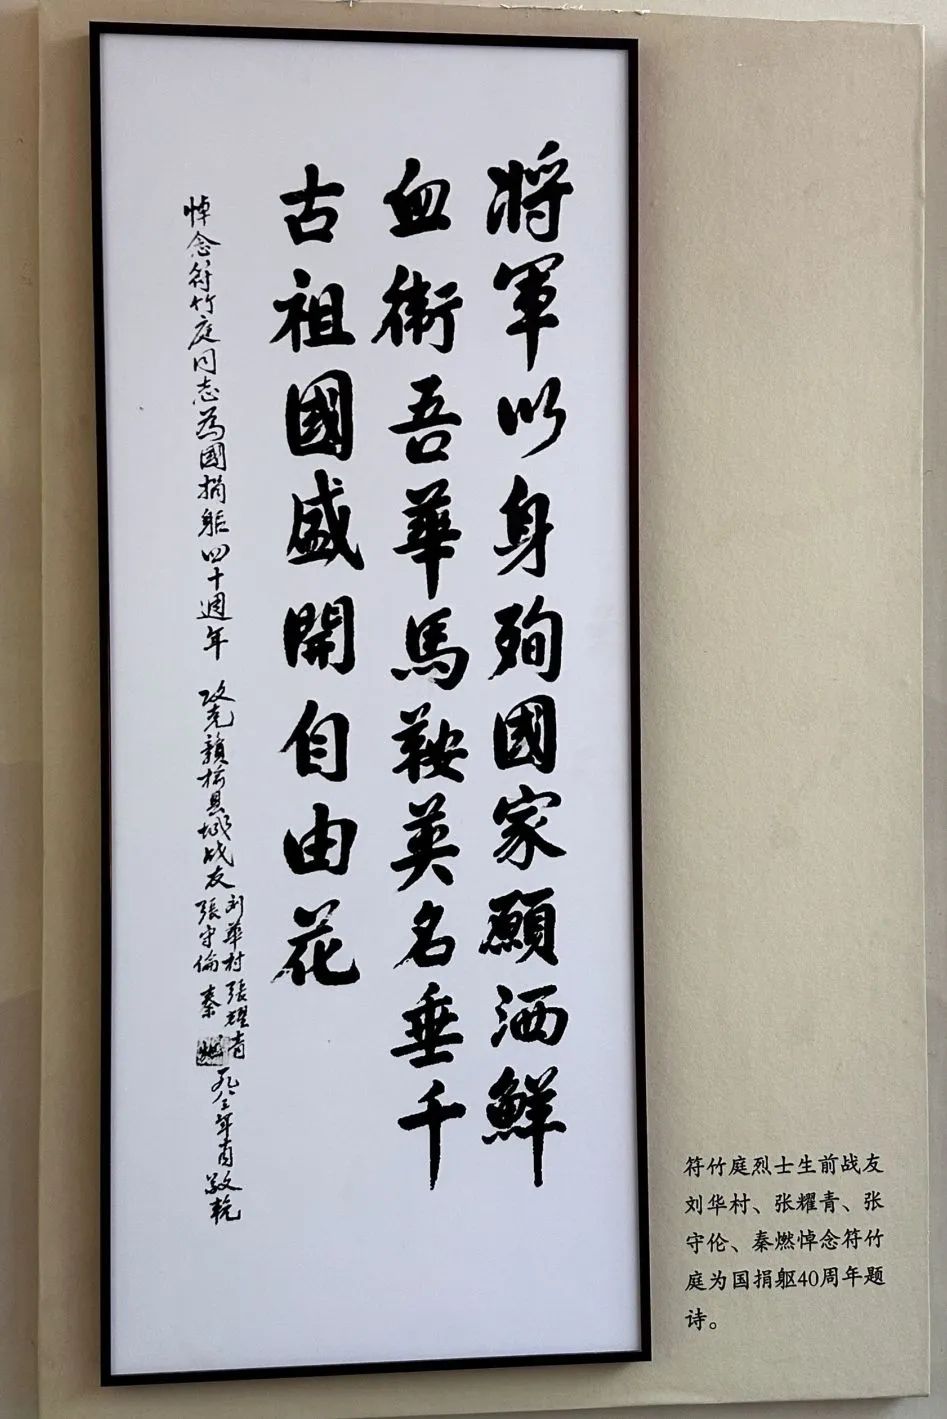 将軍以身殉國家願洒鮮
血衛吾華馬鞍英名垂千
古祖國盛開自由花
悼念符竹庭同志為國捐躯四十週年
攻克贛榆县城战友
刘華村張耀青
張守倫秦
一九八三年
敬輓
符竹庭烈士生前战友
刘华村、张耀青、张
守伦、秦燃悼念符竹
庭为国捐躯40周年题
诗。